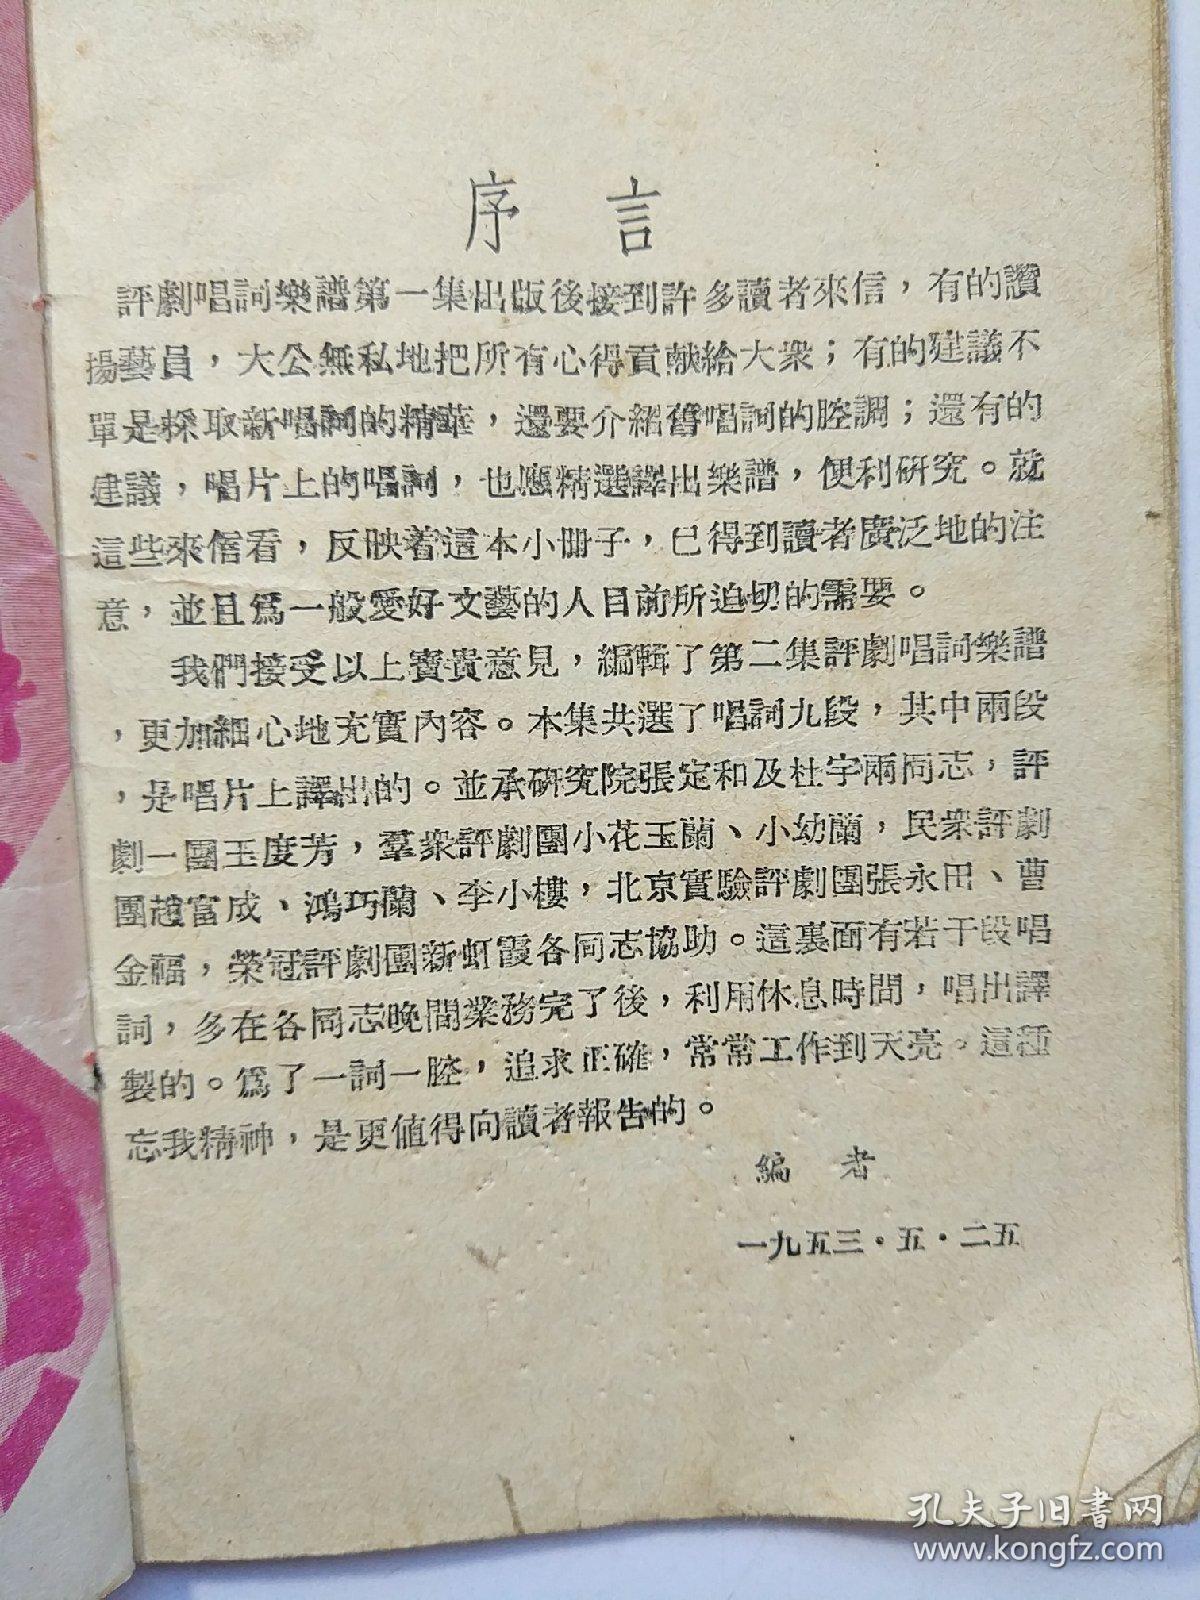 序言
評劇唱詞樂譜第一集出版後接到許多讀者來信，有的讚
揚藝員，大公無私地把所有心得貢献給大衆；有的建議不
單是採取新唱詞的精華，還要介紹舊唱詞的腔調；還有的
建議，唱片上的唱詞，也應精選譯出樂譜，便利研究。就
這些來信看，反映着這本小冊子，已得到讀者廣泛地的注
意，並且爲一般愛好文藝的人目前所迫切的需要。
我們接受以上寶貴意見，編輯了第二集評劇唱詞樂譜
，更加細心地充實內容。本集共選了唱詞九段，其中兩段
，是唱片上譯出的。並承研究院張定和及杜宇兩同志，評
劇一團玉度芳，羣衆評劇團小花玉蘭、小幼蘭，民衆評劇
團趙富成、鴻巧蘭、李小樓，北京實驗評劇團張永田、曹
金福，榮冠評劇團新虹霞各同志協助。這裏面有若干段唱
詞，多在各同志晚間業務完了後，利用休息時間，唱出譯
製的。爲了一詞一腔，追求正確，常常工作到天亮。這種
忘我精神，是更値得向讀者報告的。
編者
一九五三·五·二五
孔夫子旧书网
www.kongfz.com